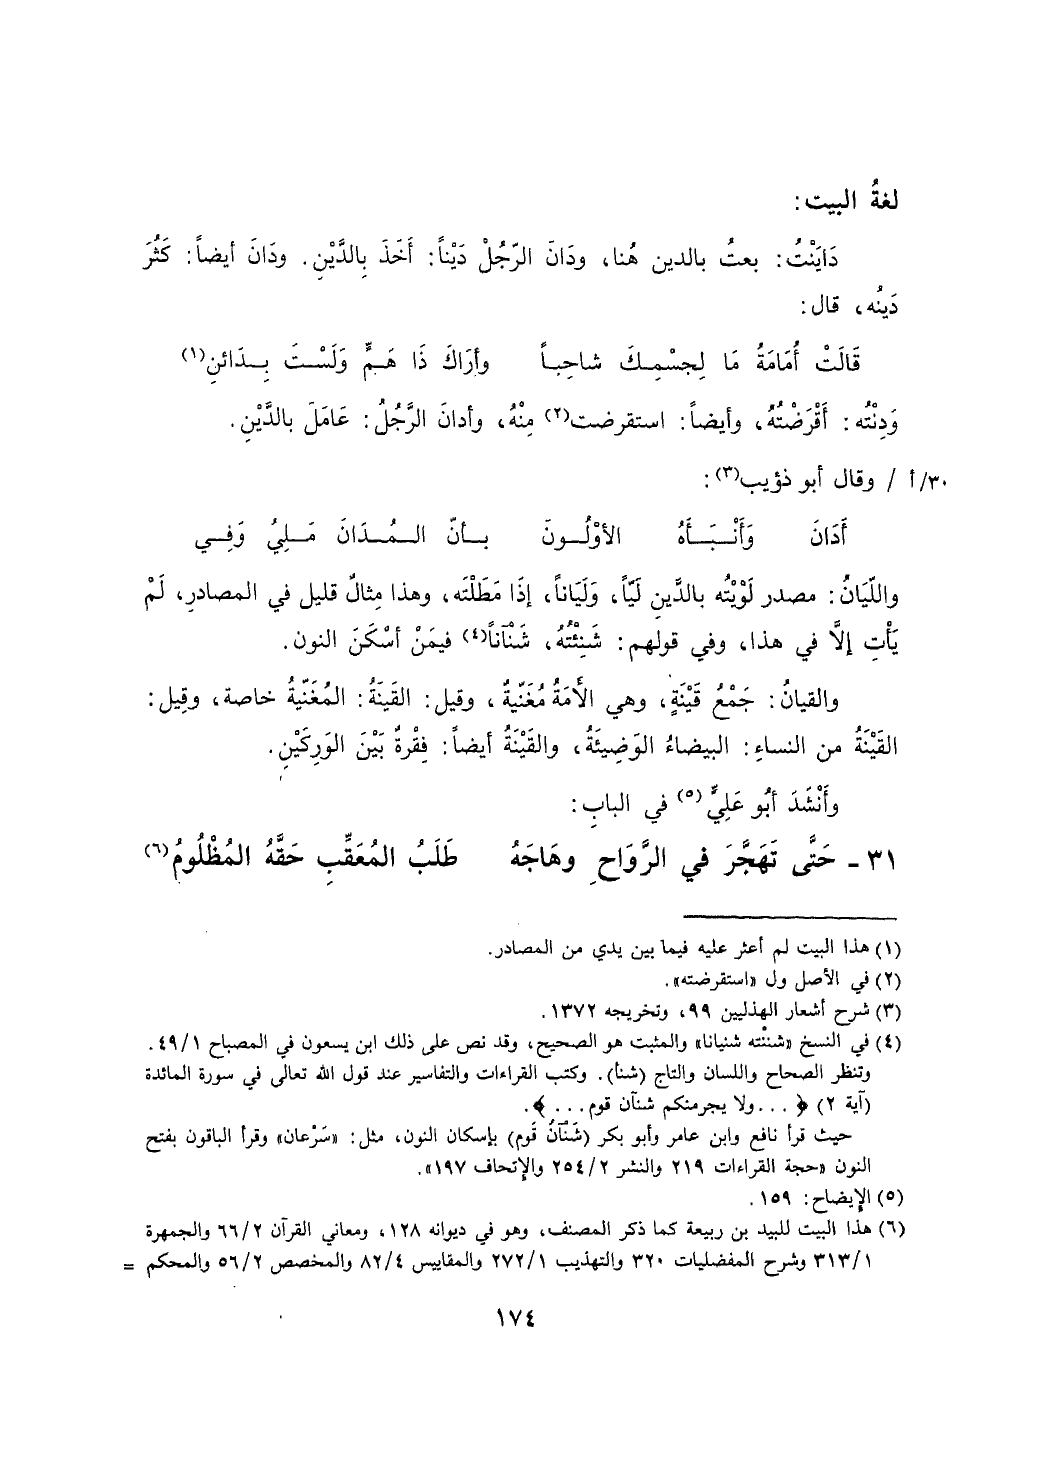 لغةُ البيت:
دَايَنْتُ: بعتُ بالدين هُنا، ودَانَ الرّجُلْ دَيْناً: أَخَذَ بِالدَّيْنِ. ودَانَ أيضاً: كَثُرَ
دَينُه، قال:
قَالَتْ أُمَامَةُ مَا لِجسْمِكَ شاحِباً وأرَاكَ ذَا هَمٍّ وَلَسْتَ بِدَائنِ(١)
وَدِنْتُه: أَقْرَضْتُهُ، وأيضاً: استقرضت(٢) مِنْهُ، وأدانَ الرَّجُلُ: عَامَلَ بالدَّيْنِ.
٣٠/أ / وقال أبو ذؤيب(٣):
أَدَانَ وَأَنْبَأَهُ الأوْلُونَ بأنّ المُدَانَ مَلِيُ وَفِي
واللّيَانُ: مصدر لَوْيْتُه بالدَّينِ لَيّاً، وَلَيَاناً، إذَا مَطَلْتَه، وهذا مِثالٌ قليل في المصادرِ، لَمْ
يَأْتِ إلَّا في هذا، وفي قولهم: شَنِئْتُهُ، شَنْآناً(٤) فيمَنْ أسْكَنَ النون.
والقيانُ: جَمْعُ قَيْنَةٍ، وهي الأَمَةُ مُغَنّيةٌ، وقيل: القَينَةُ: المُغَنّيةُ خاصة، وقِيل:
القَيْنَةُ من النساءِ: البيضاءُ الوَضِيئَةُ، والقَيْنَةُ أيضاً: فِقْرةٌ بَيْنَ الوَرِكَيْنِ.
وأَنْشَدَ أبُو عَلِيٍّ(٥) في البابِ:
٣١ - حَتَّى تَهَجَّرَ في الرَّوَاحِ وهَاجَهُ طَلَبُ المُعَقِّبِ حَقَّهُ المُظْلُومُ(٦)
(١) هذا البيت لم أعثر عليه فيما بين يدي من المصادر.
(٢) في الأصل ول «استقرضته».
(٣) شرح أشعار الهذليين ٩٩، وتخريجه ١٣٧٢.
(٤) في النسخ «شنئْته شنيانا» والمثبت هو الصحيح، وقد نص على ذلك ابن يسعون في المصباح ٤٩/١.
وتنظر الصحاح واللسان والتاج (شنأ). وكتب القراءات والتفاسير عند قول الله تعالى في سورة المائدة
(آية ٢) ﴿ ... ولا يجرمنكم شنآن قوم... ﴾.
حيث قرأ نافع وابن عامر وأبو بكر (شَنْآنُ قَوم) بإسكان النون، مثل: «سَرْعان» وقرأ الباقون بفتح
النون «حجة القراءات ٢١٩ والنشر ٢٥٤/٢ والإتحاف ١٩٧».
(٥) الإيضاح: ١٥٩.
(٦) هذا البيت للبيد بن ربيعة كما ذكر المصنف، وهو في ديوانه ١٢٨، ومعاني القرآن ٦٦/٢ والجمهرة
٣١٣/١ وشرح المفضليات ٣٢٠ والتهذيب ٢٧٢/١ والمقاييس ٨٢/٤ والمخصص ٥٦/٢ والمحكم =
١٧٤